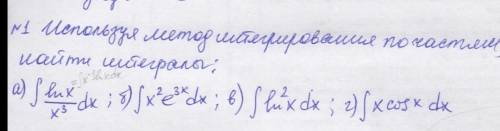 №1 Используя метод интегрирования по частям,
найти интегралы:
а) ∫ ln x / x³ dx ; б) ∫ x² e^{3x} dx ; в) ∫ ln² x dx ; г) ∫ x cos x dx